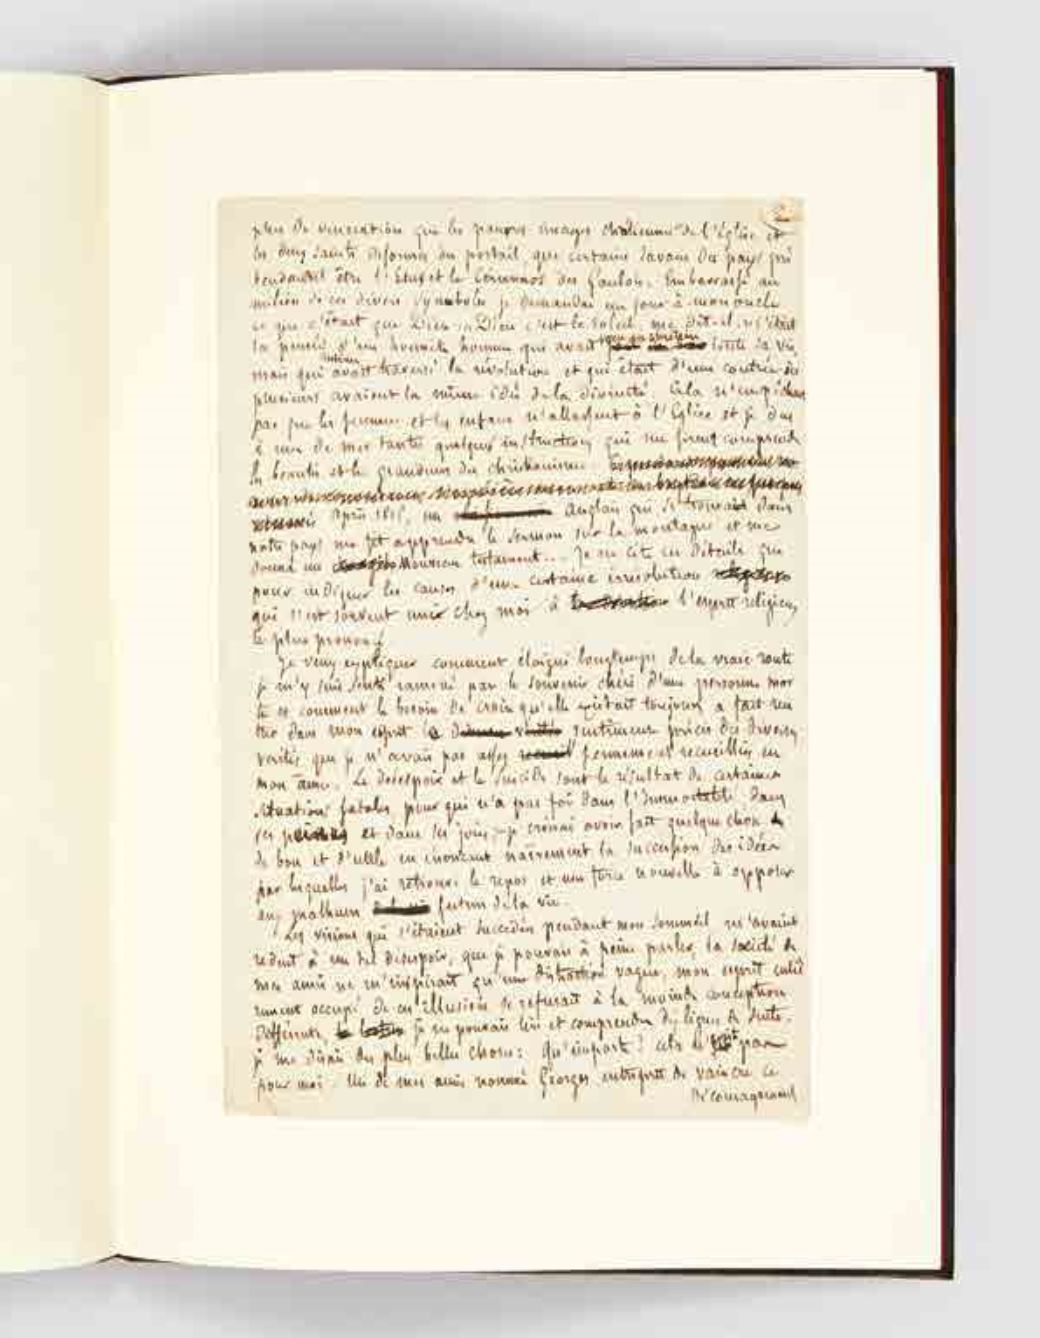 plus de vénération que les pauvres images chrétiennes de l'Église et
les deux saints déformés du portail, que certains savans du pays pré
tendaient être l'Esus et le Cernunnos des Gaulois. Embarrassé au
milieu de ces divers symboles je demandai un jour à mon oncle
ce que c'était que Dieu. « Dieu c'est le soleil, me dit-il. » c'était
la pensée d'un honnête homme qui avait vécu en chrétien toute sa vie,
mais qui avait traversé la révolution et qui était d'une contrée où
plusieurs avaient la même idée de la divinité. Cela n'empêchait
pas que les femmes et les enfans n'allassent à l'Église et je dus
à une de mes tantes quelques instructions qui me firent comprendre
les beautés et les grandeurs du christianisme.
Après 1815, un Anglais qui se trouvait dans
notre pays me fit apprendre le Sermon sur la montagne et me
donna un Nouveau testament... Je ne cite ces détails que
pour indiquer les causes d'une certaine irrésolution
qui s'est souvent unie chez moi à l'esprit religieux
le plus prononcé.
Je veux expliquer comment éloigné longtemps de la vraie route
je m'y suis senti ramené par le souvenir chéri d'une personne mor
te et comment le besoin de croire qu'elle existait toujours a fait ren
trer dans mon esprit le sentiment précis des diverses
vérités que je n'avais pas assez fermement recueillies en
mon âme. Le désespoir et le suicide sont le résultat de certaines
situations fatales pour qui n'a pas foi dans l'Immortalité, dans
ses peines et dans ses joies ; je croirai avoir fait quelque chose
de bon et d'utile en énonçant naïvement la succession des idées
par lesquelles j'ai retrouvé le repos et une force nouvelle à opposer
aux malheurs futurs de la vie.
Les visions qui s'étaient succédés pendant mon sommeil m'avaient
réduit à un tel désespoir, que je pouvais à peine parler, la société de
mes amis ne m'inspirait qu'une distraction vague, mon esprit entiè
rement occupé de ces illusions se refusait à la moindre conception
différente, je ne pouvais lire et comprendre dix lignes de suite.
je me disais des plus belles choses : Qu'importe ! cela n'est pas
pour moi. Un de mes amis nommé Georges entreprit de vaincre ce
découragement